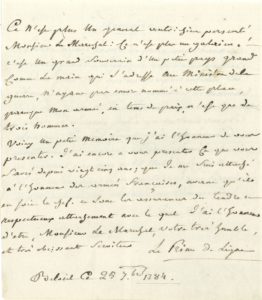 Ce N'est plus un general autrichien
Monsieur le Marechal: Ce n'est plus un
c'est un grand Souverain d'un petit pays grand
Comme la main qui s'adresse au Ministre de la
guerre, N'ayant pas encor nommé à cette place,
parceque mon armée, en tems de paix n'est que de
trois hommes.
Voici un petit memoire que j'ai l'honneur de vous
presenter. J'ai encor a vous presenter Ce que vous
Savés depuis vingt cinq ans; que Je me Suis
à l'honneur des armées francoises, avant qu'elle
en fisse le
respectueux attachement avec le quel J'ai l'honneur
d'etre, Monsieur Le Marechal, Votre très humble,
et très obeissant Serviteur
Le Prince de Ligne
Beloeil Ce 25 7bre 1784.